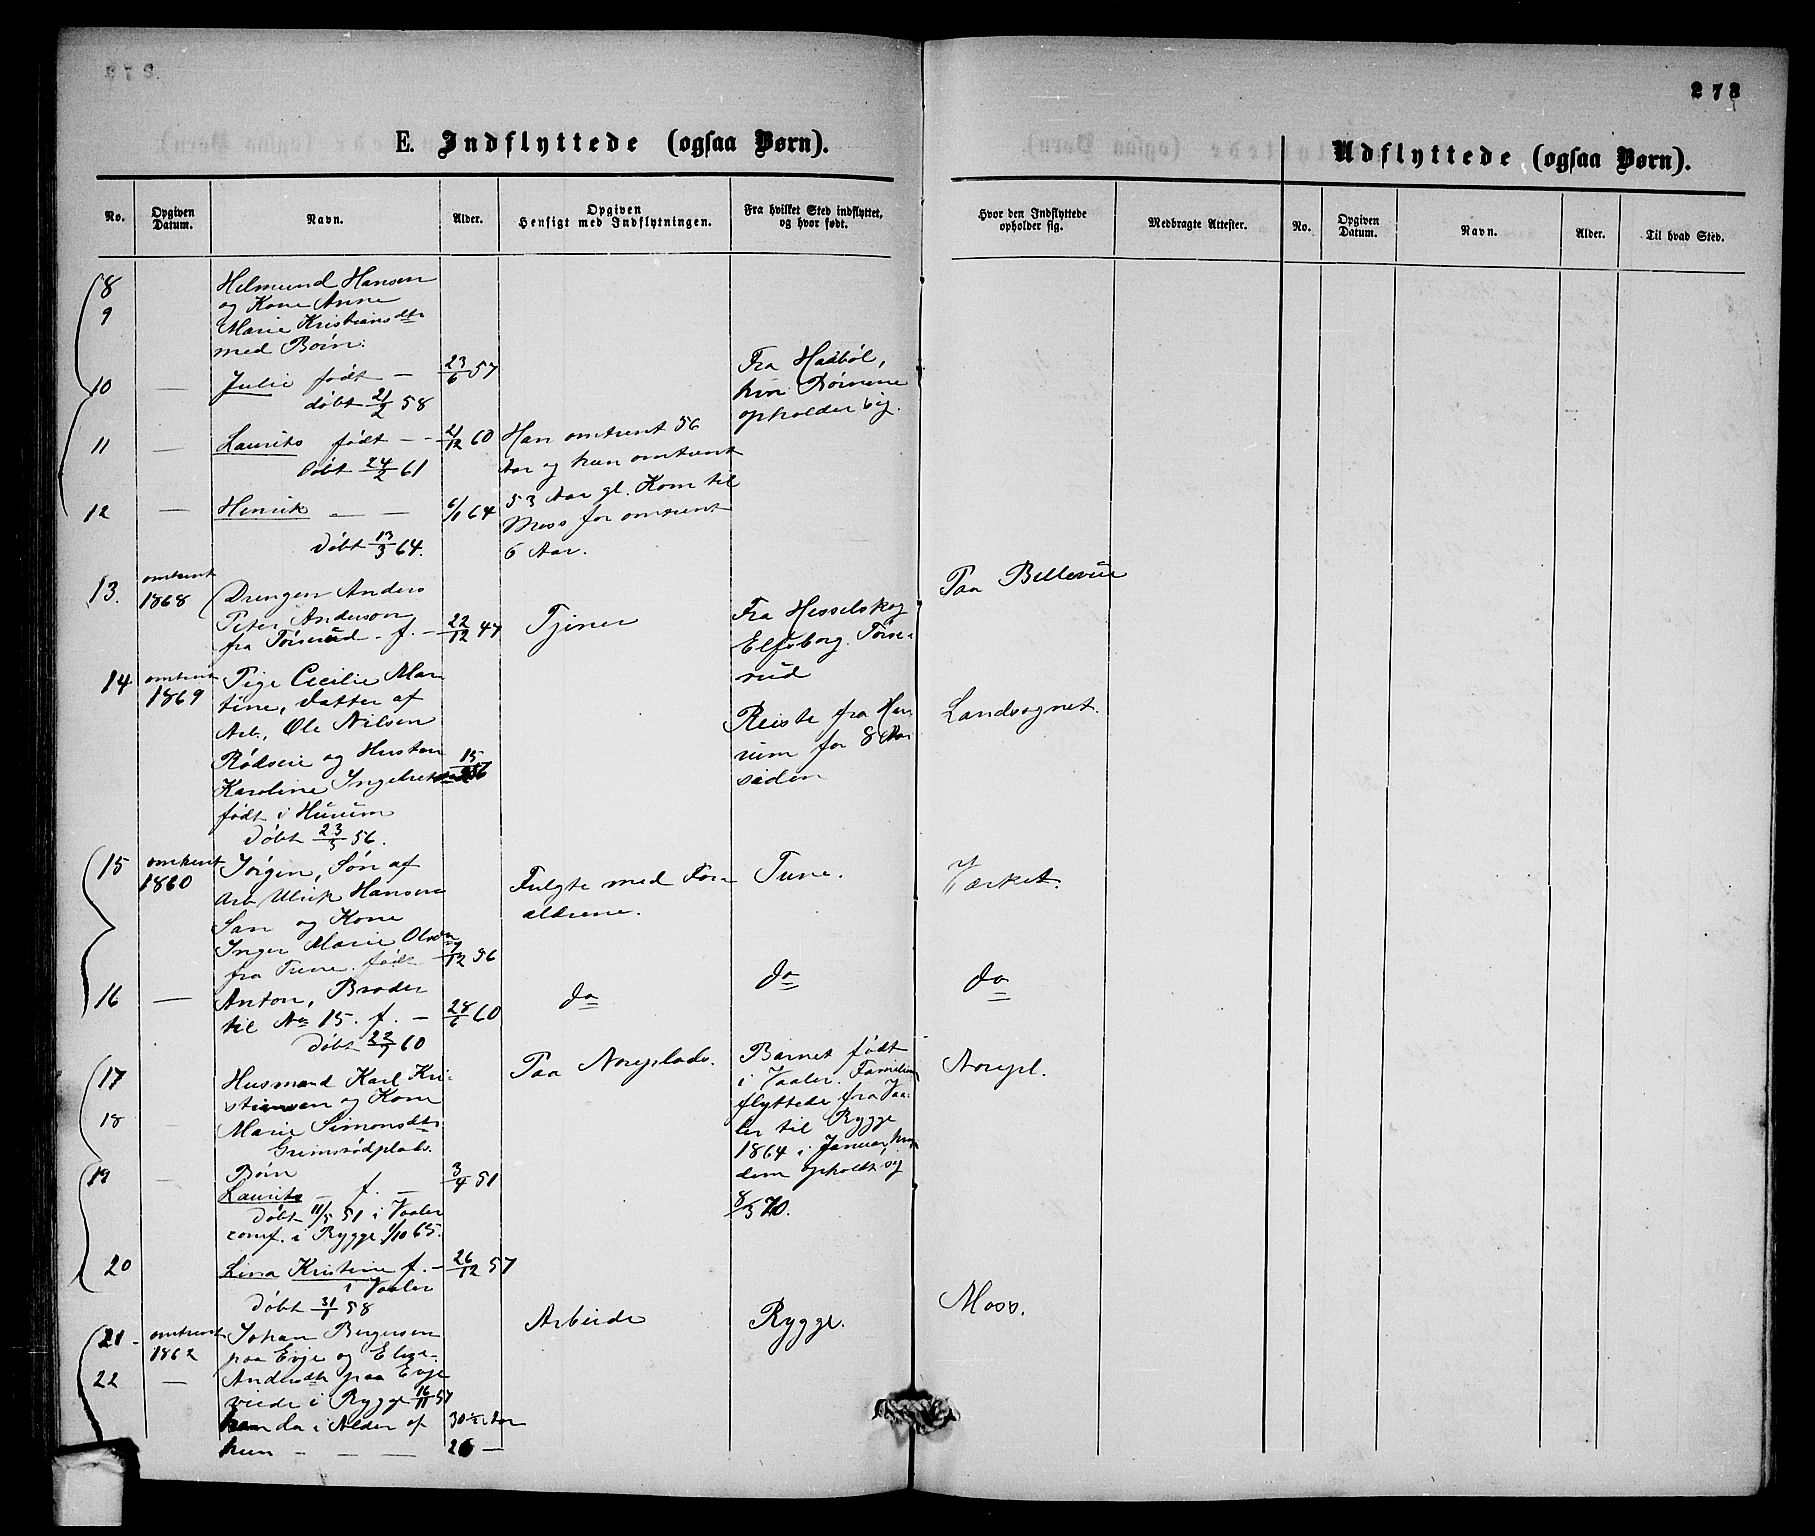 273
E. Indflyttede (ogsaa Børn).
Udflyttede (ogsaa Børn).
No.
Opgiven Datum.
Navn.
Alder.
Opgiven
Hensigt med Indflytningen.
Fra hvilket Sted indflyttet,
og hvor født.
Hvor den Indflyttede
opholder sig.
Medbragte Attester.
No.
Opgiven
Datum.
Navn.
Alder.
Til hvad Sted.
8 — Helmund Hansen
9 og Kone Anne
Marie Kristiansdtr
med Børn:
10 — Julie født — 23/6 57
døbt 21/2 58
Fra Hadböl,
hvor Børnene
opholder sig.
11 — Laurits født — - 21/12 60
Döbt 24/2 61
12 — Henrik — — 6/1 64
Döbt 13/3 64.
Han omtrent 56
Aar og hun omtrent
53 Aar gl. Kom til
Moss for omtrent
6 Aar.
13. omtrent
1868 Drengen Anders
Peter Anderson
fra Törserud - f. - 22/12 47
Tjener
Fra Hesselskog
Elfsborg. Törse-
rud
Paa Bellevue
14 omtrent
1869 Pige Cecilie Mar-
tine, Datter af
Arb. Ole Nilsen
Rödseie og Hustru
Karoline Ingebret
født i Hurum
Döbt 23/3 56.
Reiste fra Hu-
rum for 8 Aar
siden
Landsognet.
15 omtrent
1860 Jörgen, Søn af
Arb Ulrik Hansen
San og Kone
Inger Marie Olsdtr
fra Tune. født - 7/12 56
Fulgte med For-
ældrene.
Tune.
Værket.
16 — Anton, Broder
til No 15. f. — 28/6 60
Döbt 22/7 60
do
do
do
17 Husmand Karl Kri-
stiansen og Kone
18 - Marie Simonsdtr
Grimsrödplads.
Paa Noreplads.
Barnet født
i Vaaler. Familien
flyttede fra Vaa-
ler til Rygge
1864 i Januar, hvor
dem opholdt sig
8/5 70.
Norepl.
19 - Børn
Laurits - f. — 3/4 51
Döbt 11/5 51 i Vaaler
conf. i Rygge 1/10 65.
20 Lina Kristine f. - 26/12 57
i Vaaler
Döbt 31/1 58
21 - omtrent
1862 Johan Bergersen
paa Evje og Elise
22 — Andersdtr paa Evje
viede i Rygge 16/11 57
han da i Alder af 30 1/2 Aar
hun — — — 26 —
Arbeide
Rygge.
Moss.